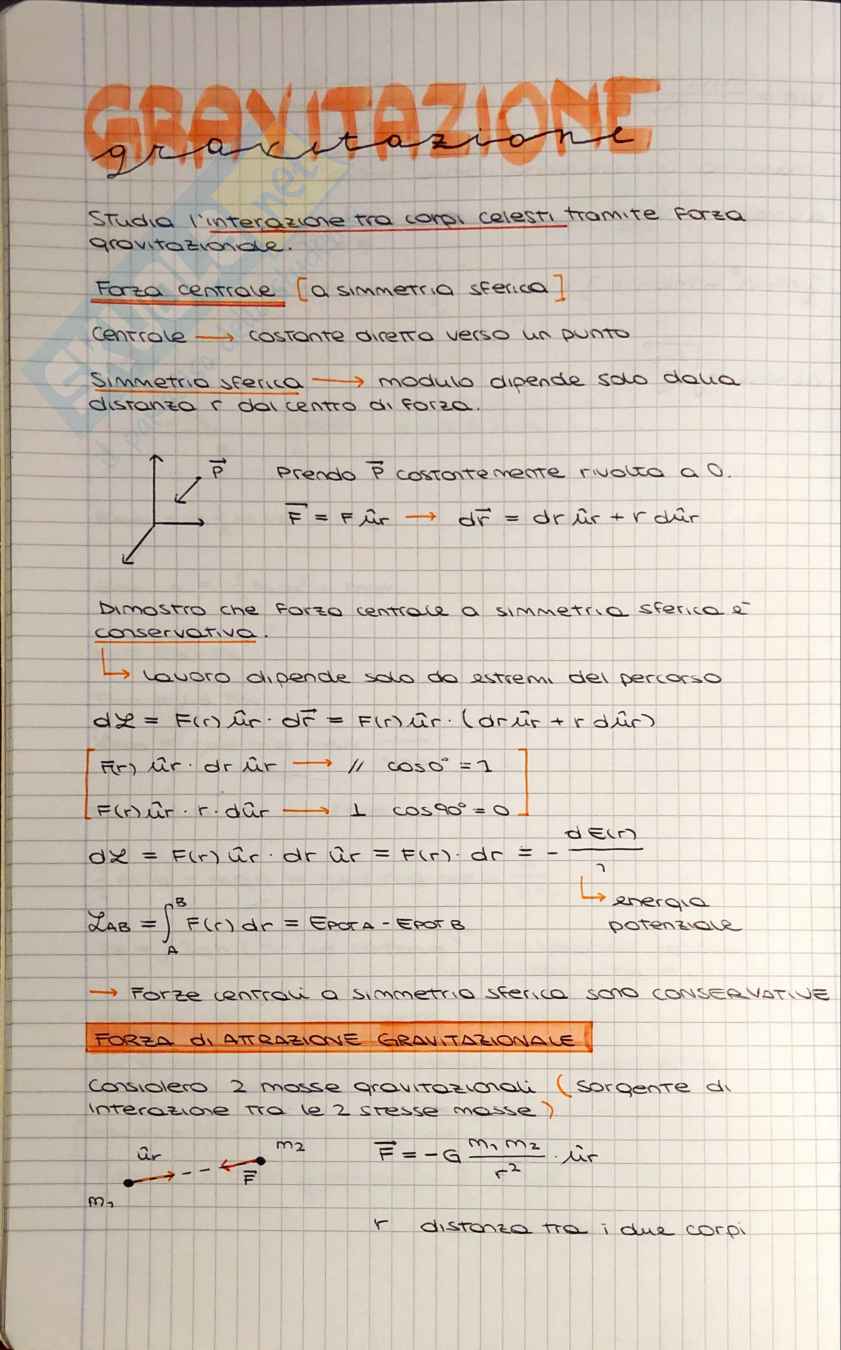 GRAVITAZIONE
gravitazione
Studia l'interazione tra corpi celesti tramite forza
gravitazionale.
Forza centrale [a simmetria sferica]
Centrale → costante diretta verso un punto
Simmetria sferica → modulo dipende solo dalla
distanza r dal centro di forza.
P⃗ Prendo P⃗ costantemente rivolta a O.
F⃗ = F ûr → dr⃗ = dr ûr + r dûr
Dimostro che forza centrale a simmetria sferica è
conservativa.
↳ lavoro dipende solo da estremi del percorso
dℒ = F(r) ûr · dr⃗ = F(r) ûr · (dr ûr + r dûr)
F(r) ûr · dr ûr → // cos0° = 1
F(r) ûr · r · dûr → ⊥ cos90° = 0
dℒ = F(r) ûr · dr ûr = F(r) · dr = - dE(r)
↳ energia
potenziale
ℒAB = ∫ A B F(r) dr = EPOT A - EPOT B
→ Forze centrali a simmetria sferica sono CONSERVATIVE
FORZA di ATTRAZIONE GRAVITAZIONALE
Considero 2 masse gravitazionali (sorgente di
interazione tra le 2 stesse masse)
m1 ûr F⃗ m2 F⃗ = -G m1 m2 / r² · ûr
r distanza tra i due corpi